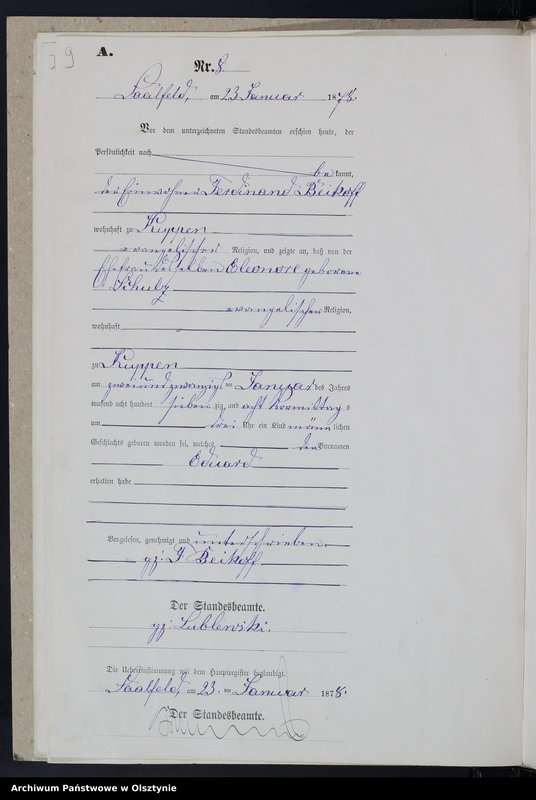 A.
Nr. 8
Saalfeld, am 23 Januar 1878.
Vor dem unterzeichneten Standesbeamten erschien heute, der
Persönlichkeit nach
bekannt,
der Einwohner Ferdinand Beikoff
wohnhaft zu Kuppen
evangelischer Religion, und zeigte an, daß von der
Ehefrau desselben Eleonore geborene
evangelischer Religion,
wohnhaft
zu Kuppen
am zweiundzwanzigsten Januar des Jahres
tausend acht hundert siebenzig und acht Vormittags
um drei Uhr ein Kind männlichen
Geschlechts geboren worden sei, welches den Vornamen
Eduard
erhalten habe
Vorgelesen, genehmigt und unterschrieben
gz: F Beikoff
Der Standesbeamte.
gz: Lublewski.
Die Uebereinstimmung mit dem Hauptregister beglaubigt.
Saalfeld, am 23. ten Januar 1878.
Der Standesbeamte.
Archiwum Państwowe w Olsztynie